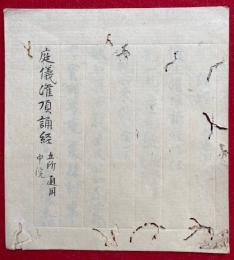 庭儀灌頂誦経
五所通用
中院